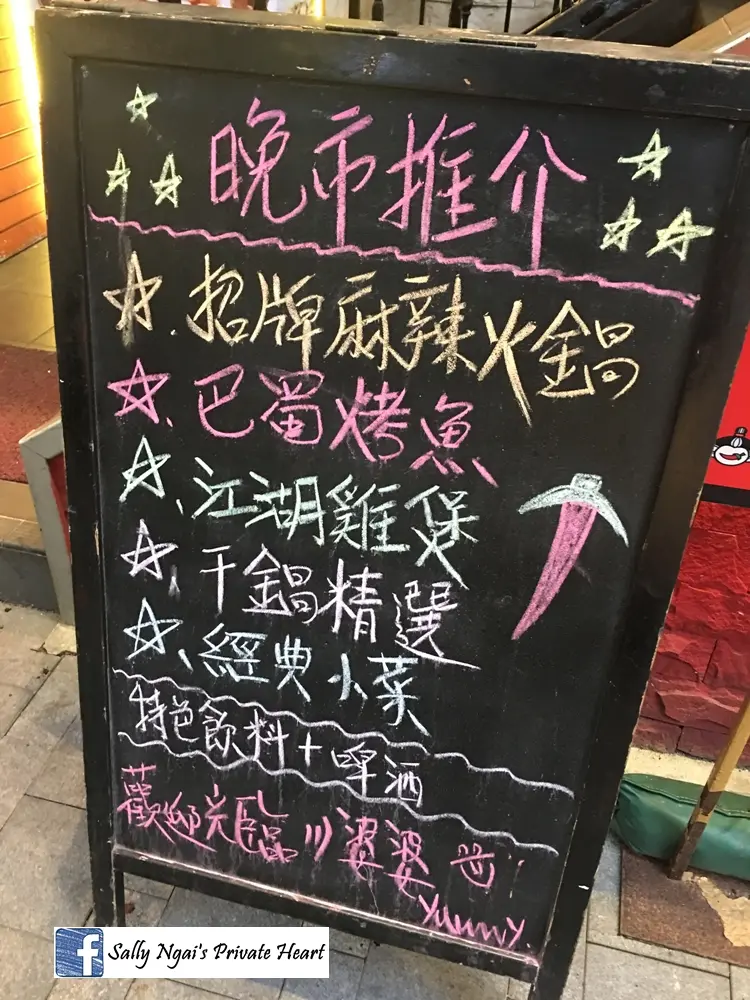 晚市推介
招牌麻辣火鍋
巴蜀烤魚
江湖雞煲
干鍋精選
經典小菜
特色飲料+啤酒
歡迎光臨川婆婆
yummy.
f Sally Ngai's Private Heart